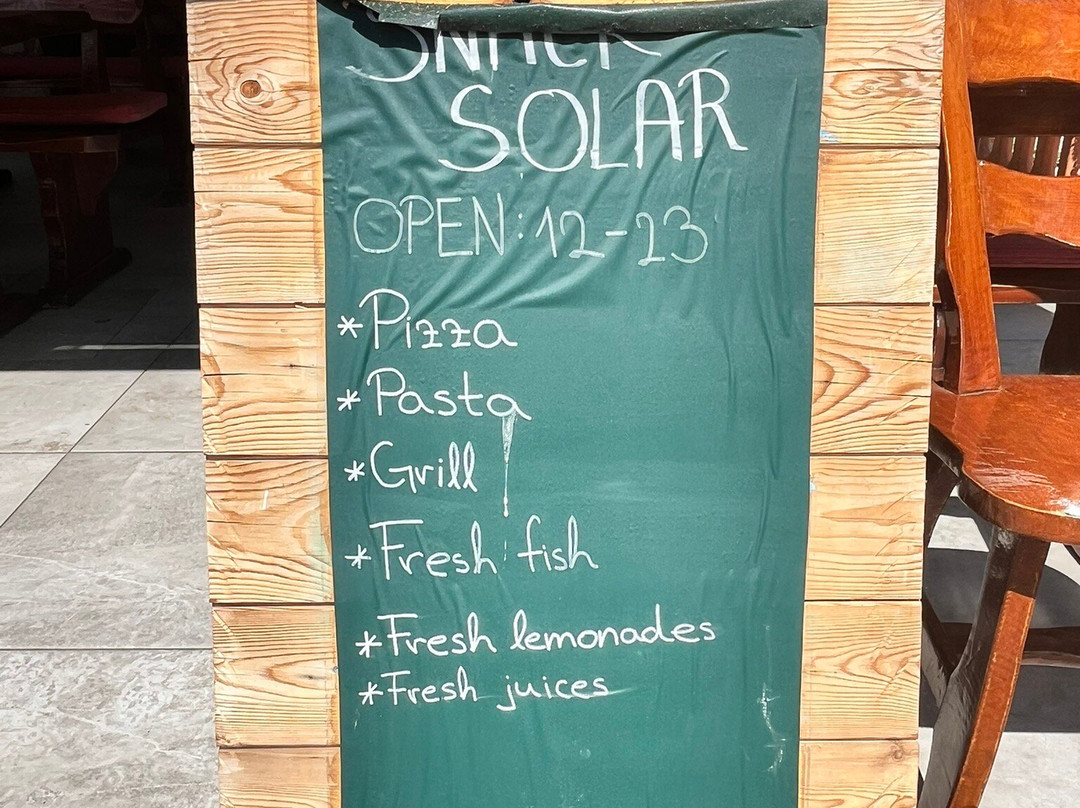 SNACK
SOLAR
OPEN: 12-23
*Pizza
*Pasta
*Grill
*Fresh fish
*Fresh lemonades
*Fresh juices